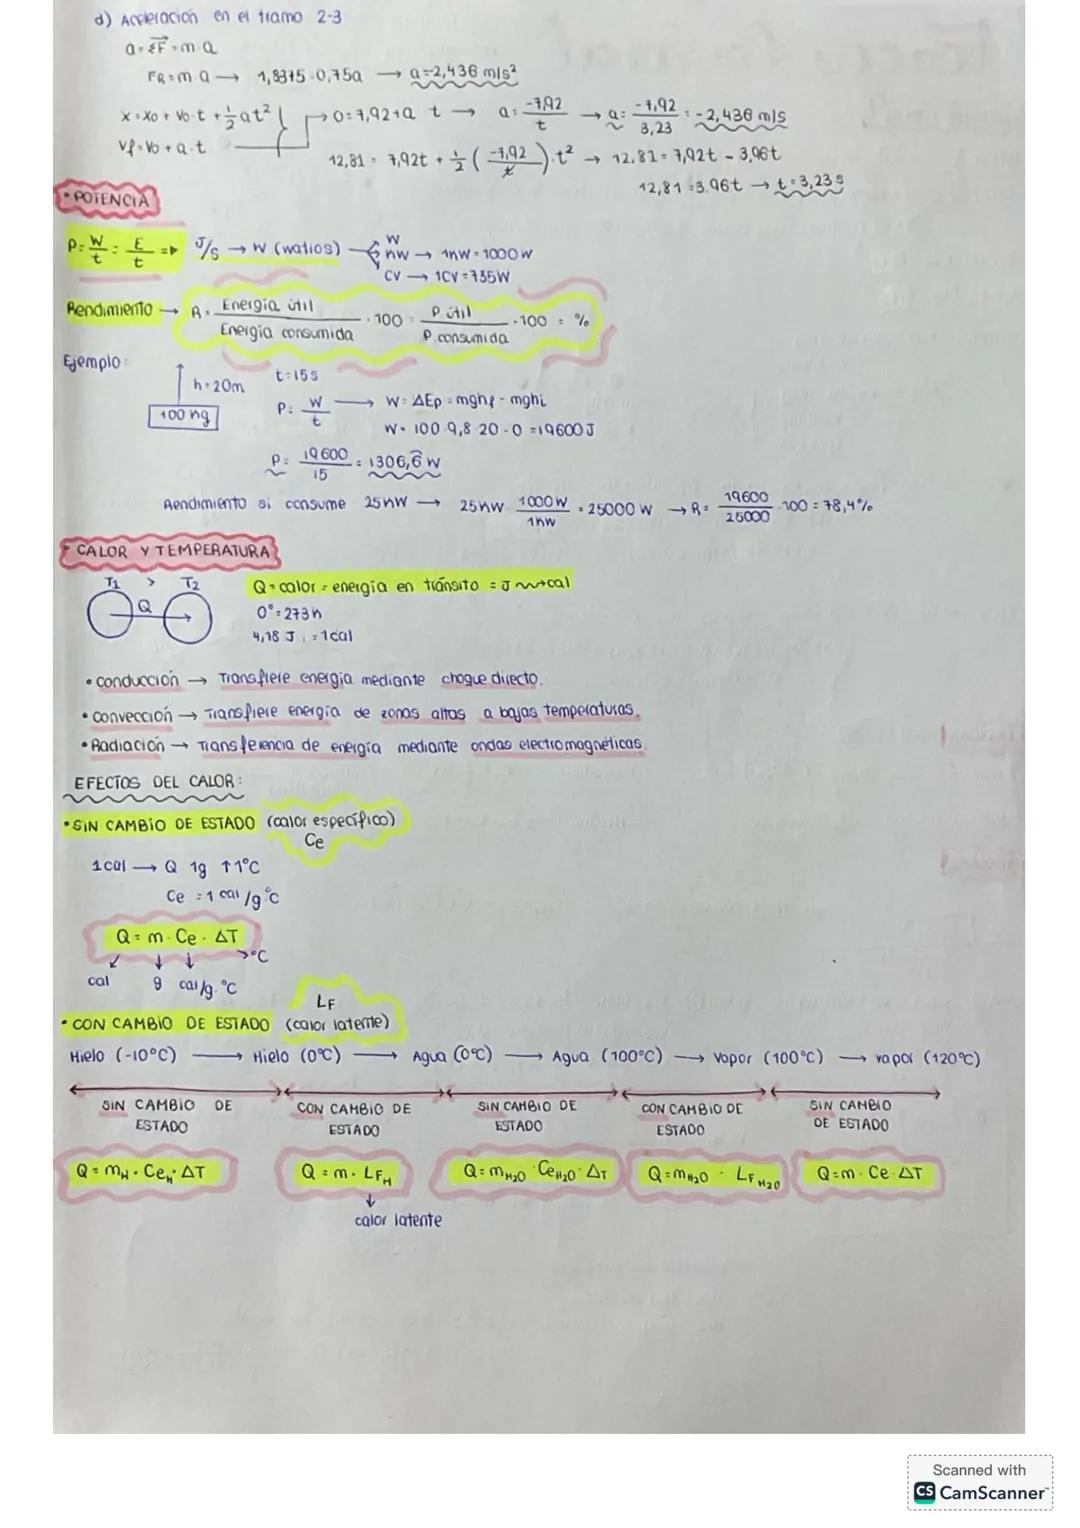 d) Aceleración en el tramo 2-3
a = ΣF = m·a
FR = m·a → 1,8375 = 0,75a → a = -2,436 m/s²
x = x0 + v0·t + 1/2 at² → 0 = 7,92 + a t → a = -7,92/t → a = -7,92/3,23 = -2,436 m/s
vf = v0 + a·t
12,81 = 7,92t + 1/2 (-7,92/t)·t² → 12,81 = 7,92t - 3,96t
12,81 = 3,96t → t = 3,23s
• POTENCIA
P = W/t = E/t => J/s → W (watios)
W
KW → 1KW = 1000W
CV → 1CV = 735W
Rendimiento → R = Energía útil/Energía consumida · 100 = P. útil/P. consumida · 100 = %
Ejemplo:
h = 20m
t = 15s
100 kg
P = W/t → W = ΔEp = mghf - mghi
W = 100·9,8·20 - 0 = 19600J
P = 19600/15 = 1306,6 W
Rendimiento si consume 25KW → 25KW · 1000W/1KW = 25000 W → R = 19600/25000 · 100 = 78,4%
• CALOR Y TEMPERATURA
T1 > T2
Q
Q = calor = energía en tránsito = J → cal
0° = 273K
4,18 J = 1cal
• conducción → Transfiere energía mediante choque directo.
• convección → Transfiere energía de zonas altas a bajas temperaturas.
• Radiación → Transferencia de energía mediante ondas electromagnéticas.
EFECTOS DEL CALOR:
• SIN CAMBIO DE ESTADO (calor específico)
Ce
1cal → Q 1g ↑1°C
Ce = 1 cal/g°C
Q = m · Ce · ΔT
→ °C
cal g cal/g·°C
LF
• CON CAMBIO DE ESTADO (calor latente)
Hielo (-10°C) → Hielo (0°C) → Agua (0°C) → Agua (100°C) → Vapor (100°C) → vapor (120°C)
SIN CAMBIO DE ESTADO
CON CAMBIO DE ESTADO
SIN CAMBIO DE ESTADO
CON CAMBIO DE ESTADO
SIN CAMBIO DE ESTADO
Q = mH · CeH · ΔT
Q = m · LFH
Q = mH2O · CeH2O · ΔT
Q = mH2O · LF H2O
Q = m · Ce · ΔT
calor latente
Scanned with
CS CamScanner